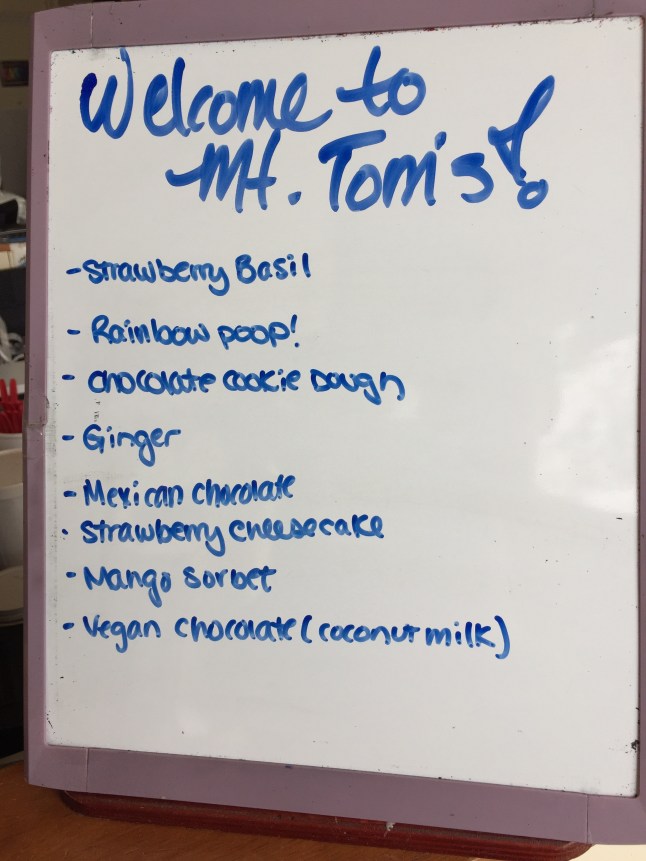 Welcome to
Mt. Tom's!
- Strawberry Basil
- Rainbow poop!
- Chocolate cookie Dough
- Ginger
- Mexican chocolate
- Strawberry cheesecake
- Mango sorbet
- Vegan chocolate (coconut milk)